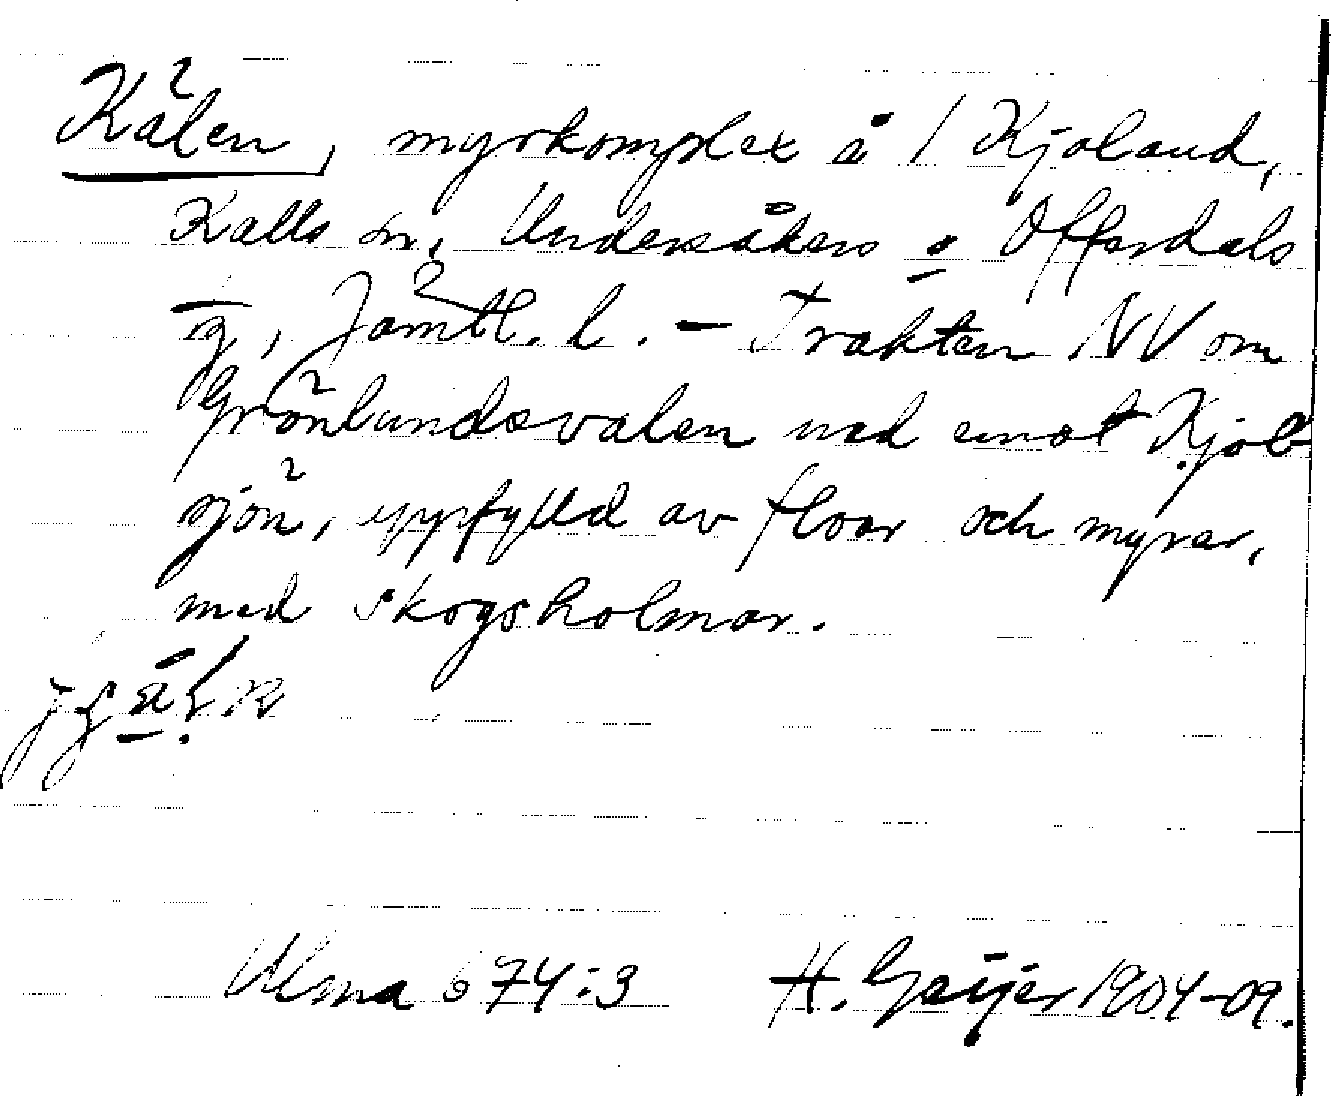 Kälen, myrkomplex å / Kjoland,
Kalls sn, Undersåkers o Offerdals
tg, Jämtl. l. - Trakten NV om
Grönlundsvalen ned emot Kjol-
sjön, uppfylld av floar och myrar,
med skogsholmar.
Ulma 674:3 H. Geijer 1904-09.